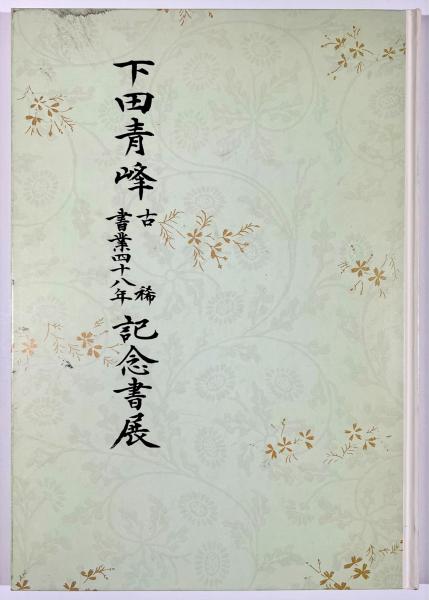 下田青峰
古稀
書業四十八年
記念書展